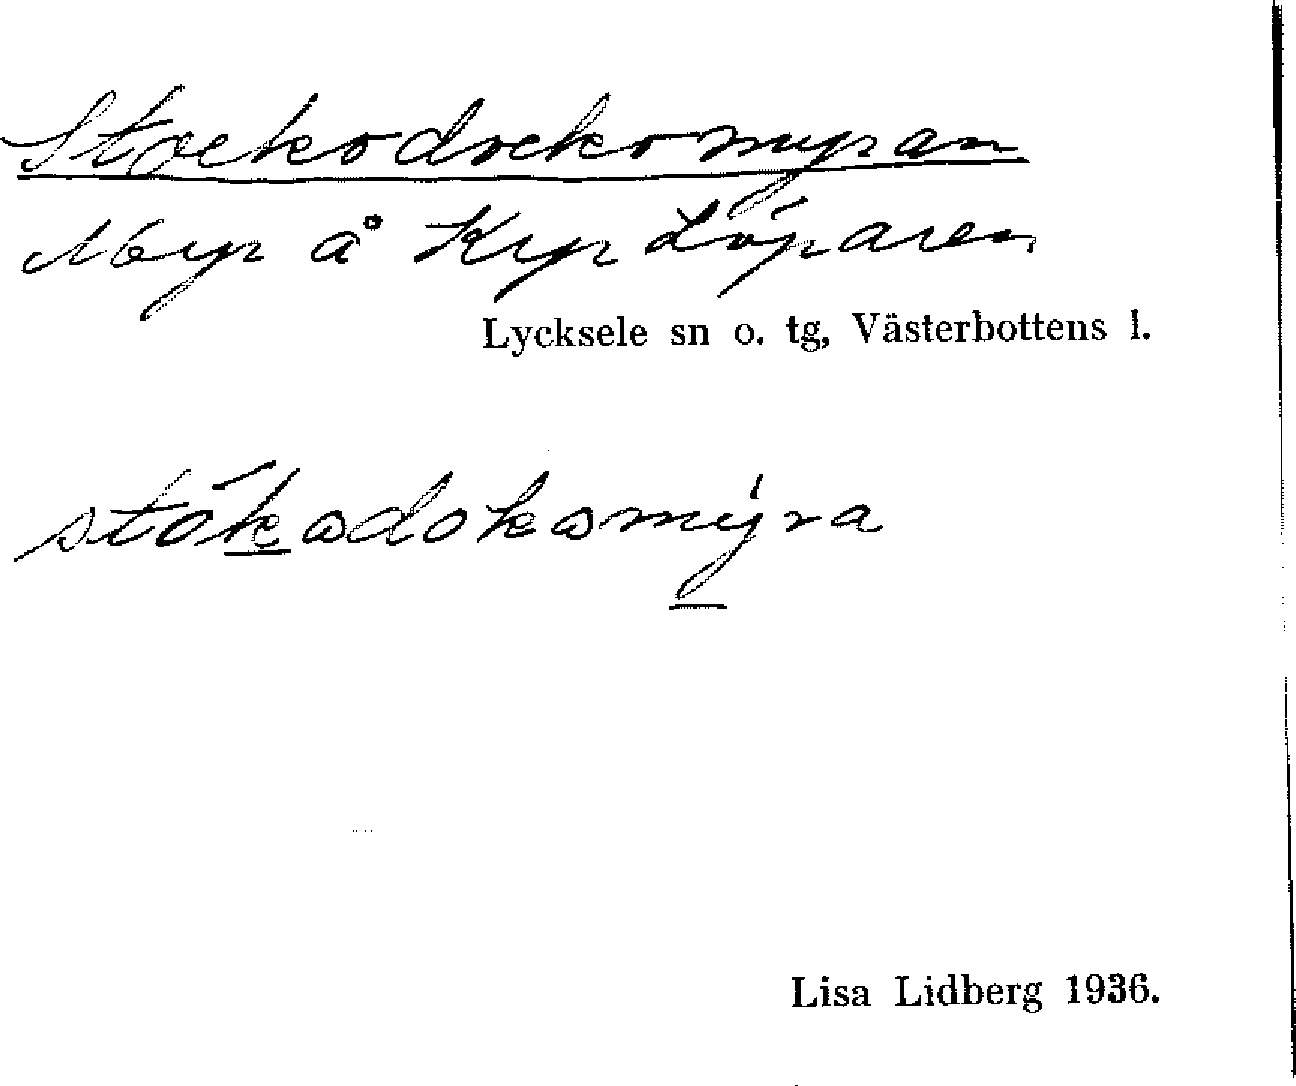 Stockodockomyran
Myr å Kr Löparen
Lycksele sn o. tg, Västerbottens l.
stókadokamýra
Lisa Lidberg 1936.